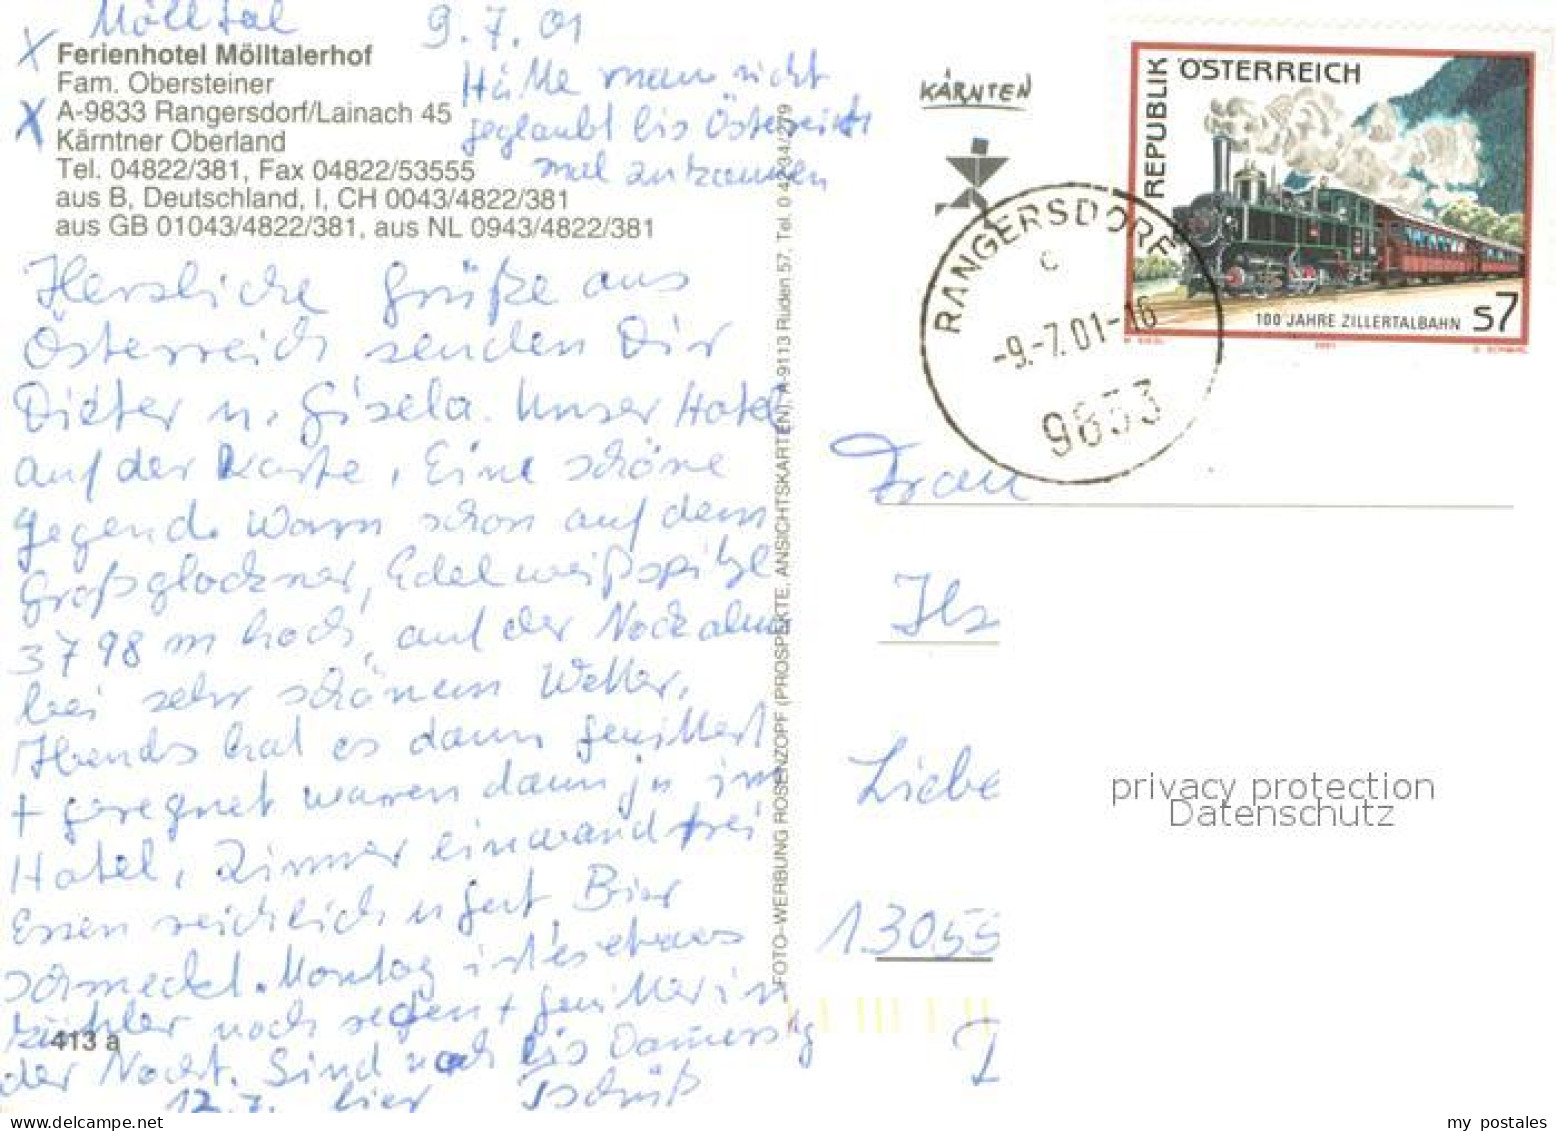 Mölltal 9.7.01
Ferienhotel Mölltalerhof
Fam. Obersteiner
A-9833 Rangersdorf/Lainach 45
Kärntner Oberland
Tel. 04822/381, Fax 04822/53555
aus B, Deutschland, I, CH 0043/4822/381
aus GB 01043/4822/381, aus NL 0943/4822/381
Hätte man nicht
geglaubt bis Österreich
mal zu kommen
Herzliche Grüße aus
Österreich senden Dir
Dieter u. Gisela. Unser Hotel
auf der Karte, Eine schöne
Gegend. Waren schon auf dem
Großglockner, Edelweißspitze
3798 m hoch, auf der Nockalm
bei sehr schönem Wetter.
Abends hat es dann gewittert
+ geregnet waren dann ja im
Hotel, Zimmer einwandfrei
Essen reichlich u gut, Bier
schmeckt. Montag ist es etwas
kühler noch regen + Gewitter in
der Nacht. Sind noch bis Donnerstg
12.7. hier Tschüß
413 a
FOTO-WERBUNG ROSENZOPF (PROSPEKTE, ANSICHTSKARTEN), A-9113 Ruden 57, Tel. 0 42 34/279
KÄRNTEN
RANGERSDORF
c
-9.-7.01-16
9833
REPUBLIK ÖSTERREICH
100 JAHRE ZILLERTALBAHN S7
2001
Frau
Ils
Liebe
13055
privacy protection
Datenschutz
my postales